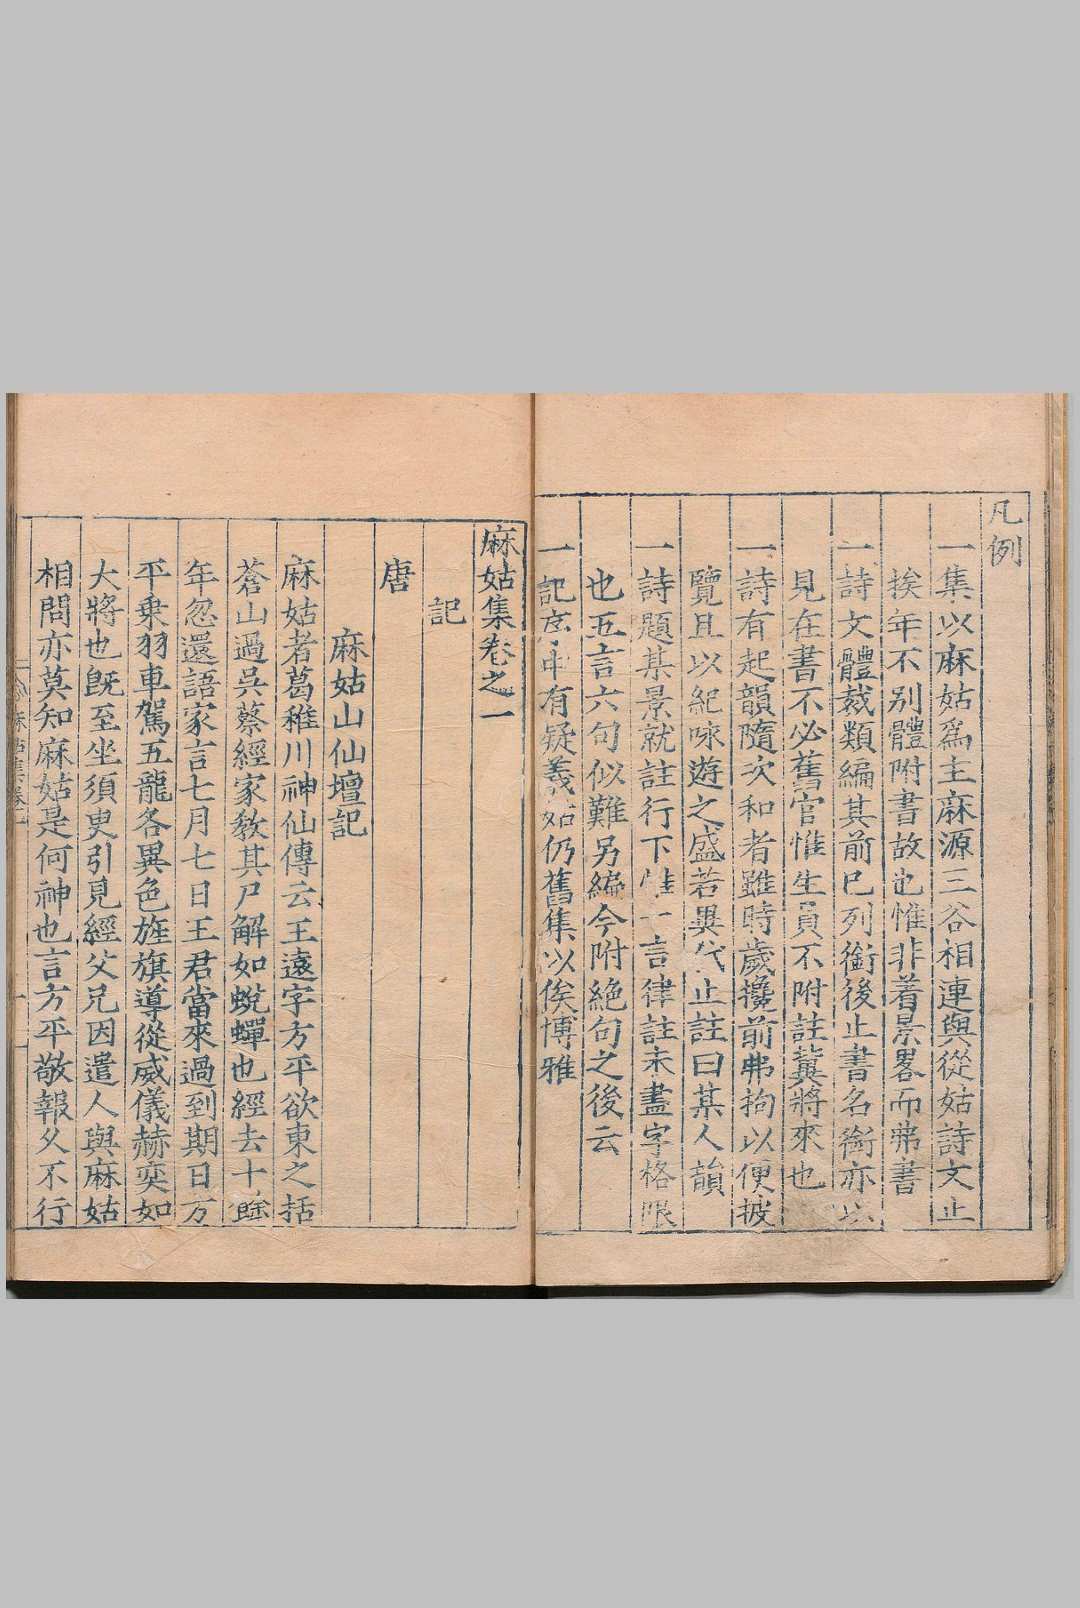 凡例
一集以麻姑爲主麻源三谷相連與從姑詩文止
挨年不别體附書故也惟非着景畧而弗書
一詩文體裁類編其前已列銜後止書名銜亦以
見在書不必舊官惟生員不附註兾將來也
一詩有起韻隨次和者雖時歲攙前弗拘以便披
覽且以紀咏遊之盛若異代止註曰某人韻
一詩題某景就註行下惟一言律註未盡字格限
也五言六句似難另編今附絶句之後云
一記序中有疑義姑仍舊集以俟博雅
麻姑集卷之一
記
唐
麻姑山仙壇記
麻姑者葛稚川神仙傳云王遠字方平欲東之括
蒼山過吳蔡經家教其尸解如蛻蟬也經去十餘
年忽還語家言七月七日王君當來過到期日方
平乗羽車駕五龍各異色旌旗導從威儀赫奕如
大將也旣至坐須臾引見經父兄因遣人與麻姑
相問亦莫知麻姑是何神也言方平敬報乆不行
麻姑集卷一